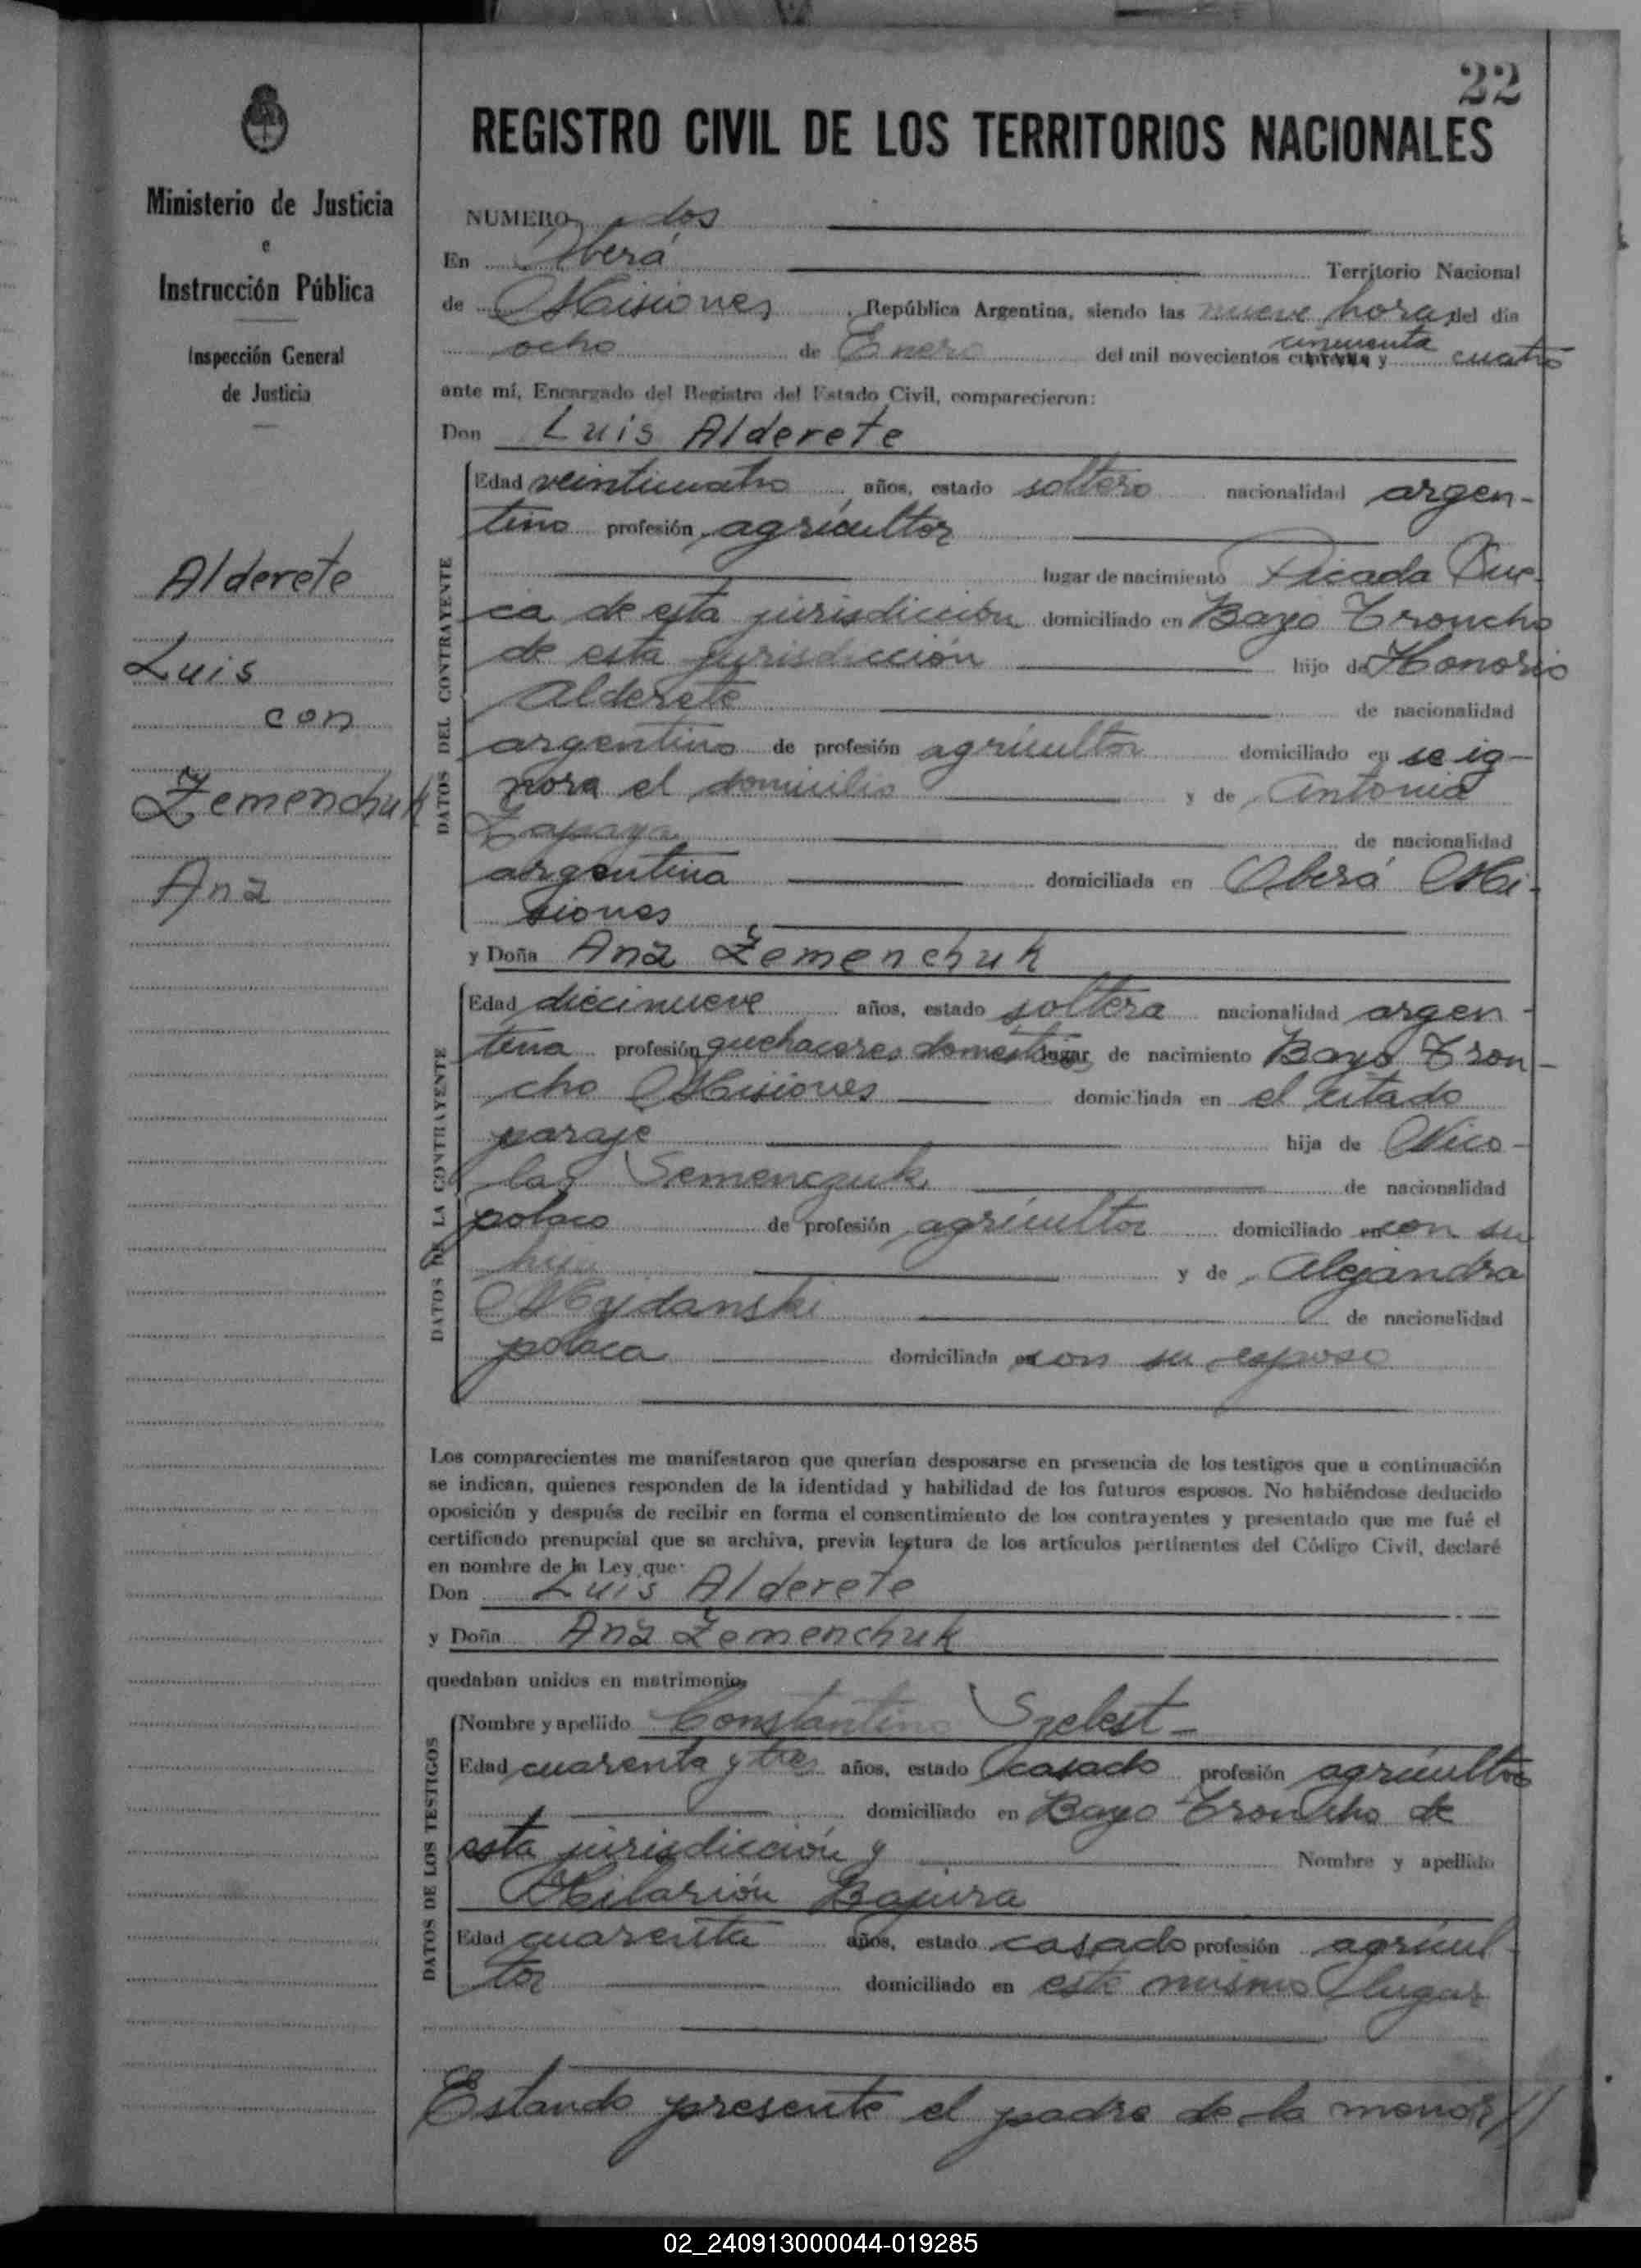 22
REGISTRO CIVIL DE LOS TERRITORIOS NACIONALES
Ministerio de Justicia
e
Instrucción Pública
Inspección General
de Justicia
Alderete
Luis
con
Zemenchuk
Ana
NUMERO dos
En Oberá Territorio Nacional
de Misiones, República Argentina, siendo las nueve horas del día
ocho de Enero del mil novecientos cincuenta y cuatro
ante mí, Encargado del Registro del Estado Civil, comparecieron:
Don Luis Alderete
DATOS DEL CONTRAYENTE
Edad veinticuatro años, estado soltero nacionalidad argen-
tino profesión agricultor
lugar de nacimiento Picada
ca de esta jurisdicción domiciliado en Bayo Troncho
de esta jurisdicción hijo de Honorio
Alderete de nacionalidad
argentino de profesión agricultor domiciliado en se ig-
nora el domicilio y de Antonia
de nacionalidad
argentina domiciliada en Oberá Mi-
siones
y Doña Ana Zemenchuk
DATOS DE LA CONTRAYENTE
Edad diecinueve años, estado soltera nacionalidad argen-
tina profesión quehaceres domésticos lugar de nacimiento Bayo Tron-
cho Misiones domiciliada en el citado
paraje hija de Nico-
las Semenczuk de nacionalidad
polaco de profesión agricultor domiciliado en con su
hija y de Alejandra
Mydanski de nacionalidad
polaca domiciliada en con su esposo
Los comparecientes me manifestaron que querían desposarse en presencia de los testigos que a continuación
se indican, quienes responden de la identidad y habilidad de los futuros esposos. No habiéndose deducido
oposición y después de recibir en forma el consentimiento de los contrayentes y presentado que me fué el
certificado prenupcial que se archiva, previa lectura de los artículos pertinentes del Código Civil, declaré
en nombre de la Ley que:
Don Luis Alderete
y Doña Ana Zemenchuk
quedaban unidos en matrimonio
DATOS DE LOS TESTIGOS
Nombre y apellido Constantino Szelest-
Edad cuarenta y tres años, estado casado profesión agricultor
domiciliado en Bayo Troncho de
esta jurisdicción y Nombre y apellido
Hilarión Bajura
Edad cuarenta años, estado casado profesión agricul-
tor domiciliado en este mismo lugar
Estando presente el padre de la menor//
02_240913000044-019285